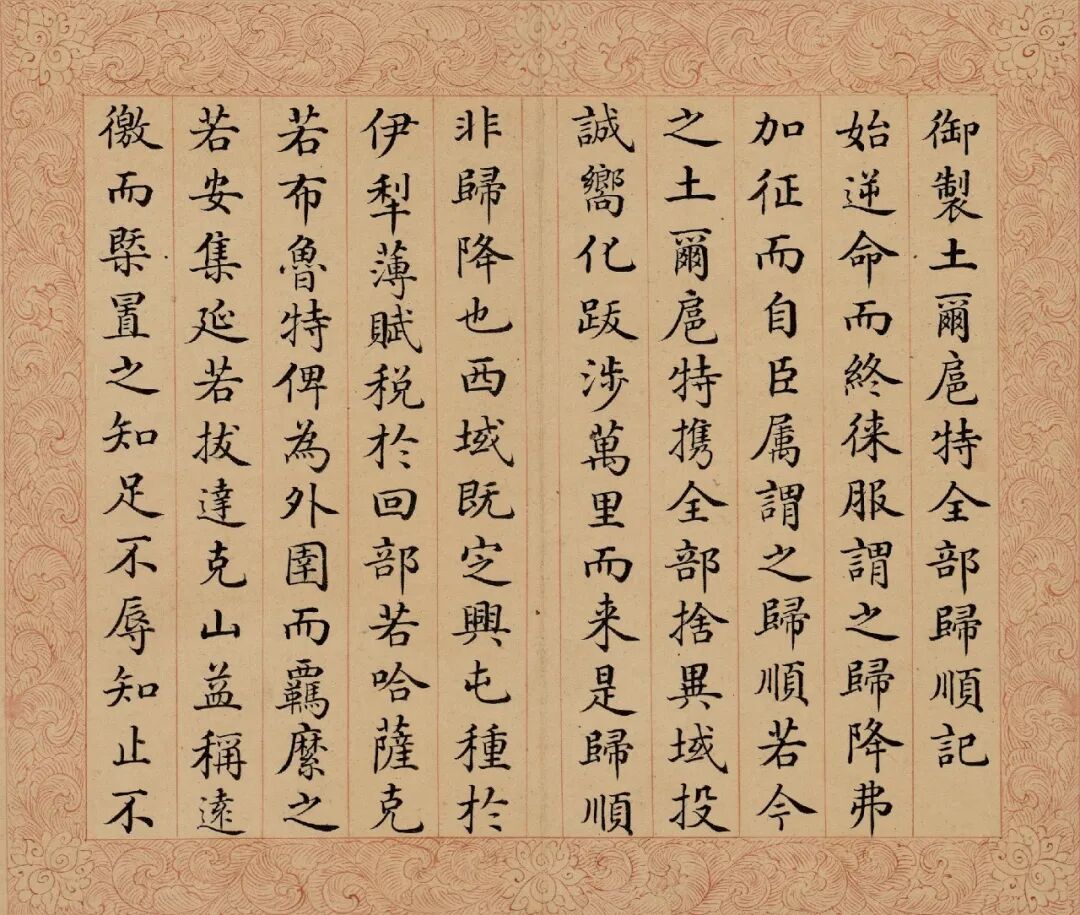 御製土爾扈特全部歸順記
始逆命而終徠服謂之歸降弗
加征而自臣属謂之歸順若今
之土爾扈特携全部捨異域投
誠嚮化跋涉萬里而来是歸順
非歸降也西域既定興屯種於
伊犁薄賦税於回部若哈薩克
若布魯特俾為外圉而羈縻之
若安集延若拔達克山益稱逺
徼而槩置之知足不辱知止不